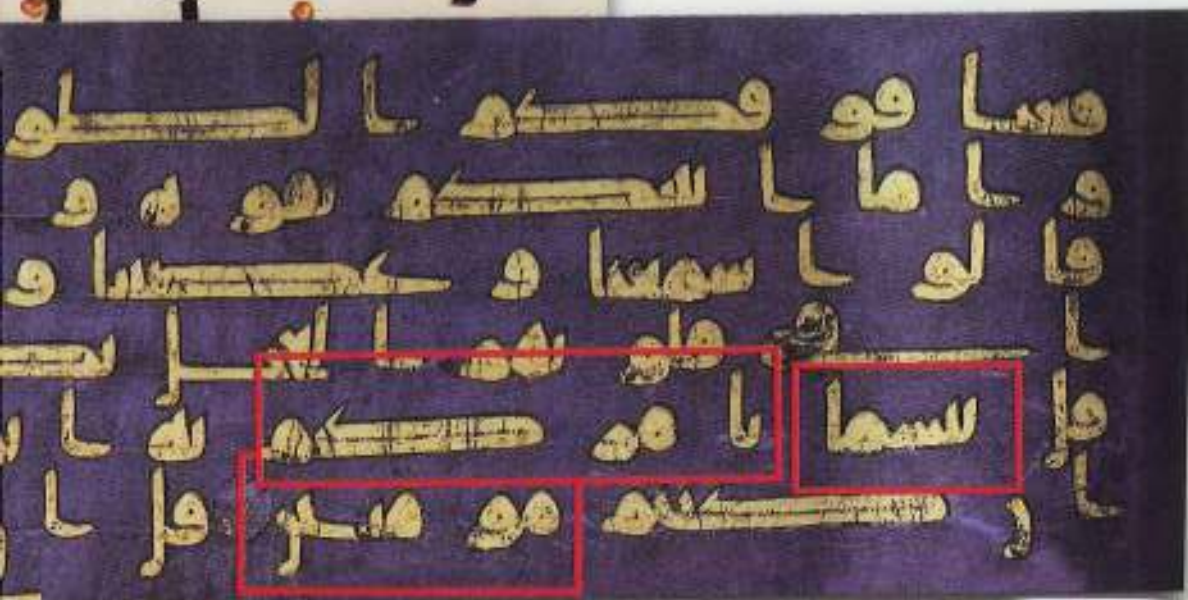 فعنا فو قكم ا لطو
و ا ما ا تينكم بقو ة و
قا لو ا سمعنا و عصينا و
ا في قلو بهم ا لعجل بكـ
قل بئسما يا مر كم به ا
ا ن كنتم مو منين قل ا